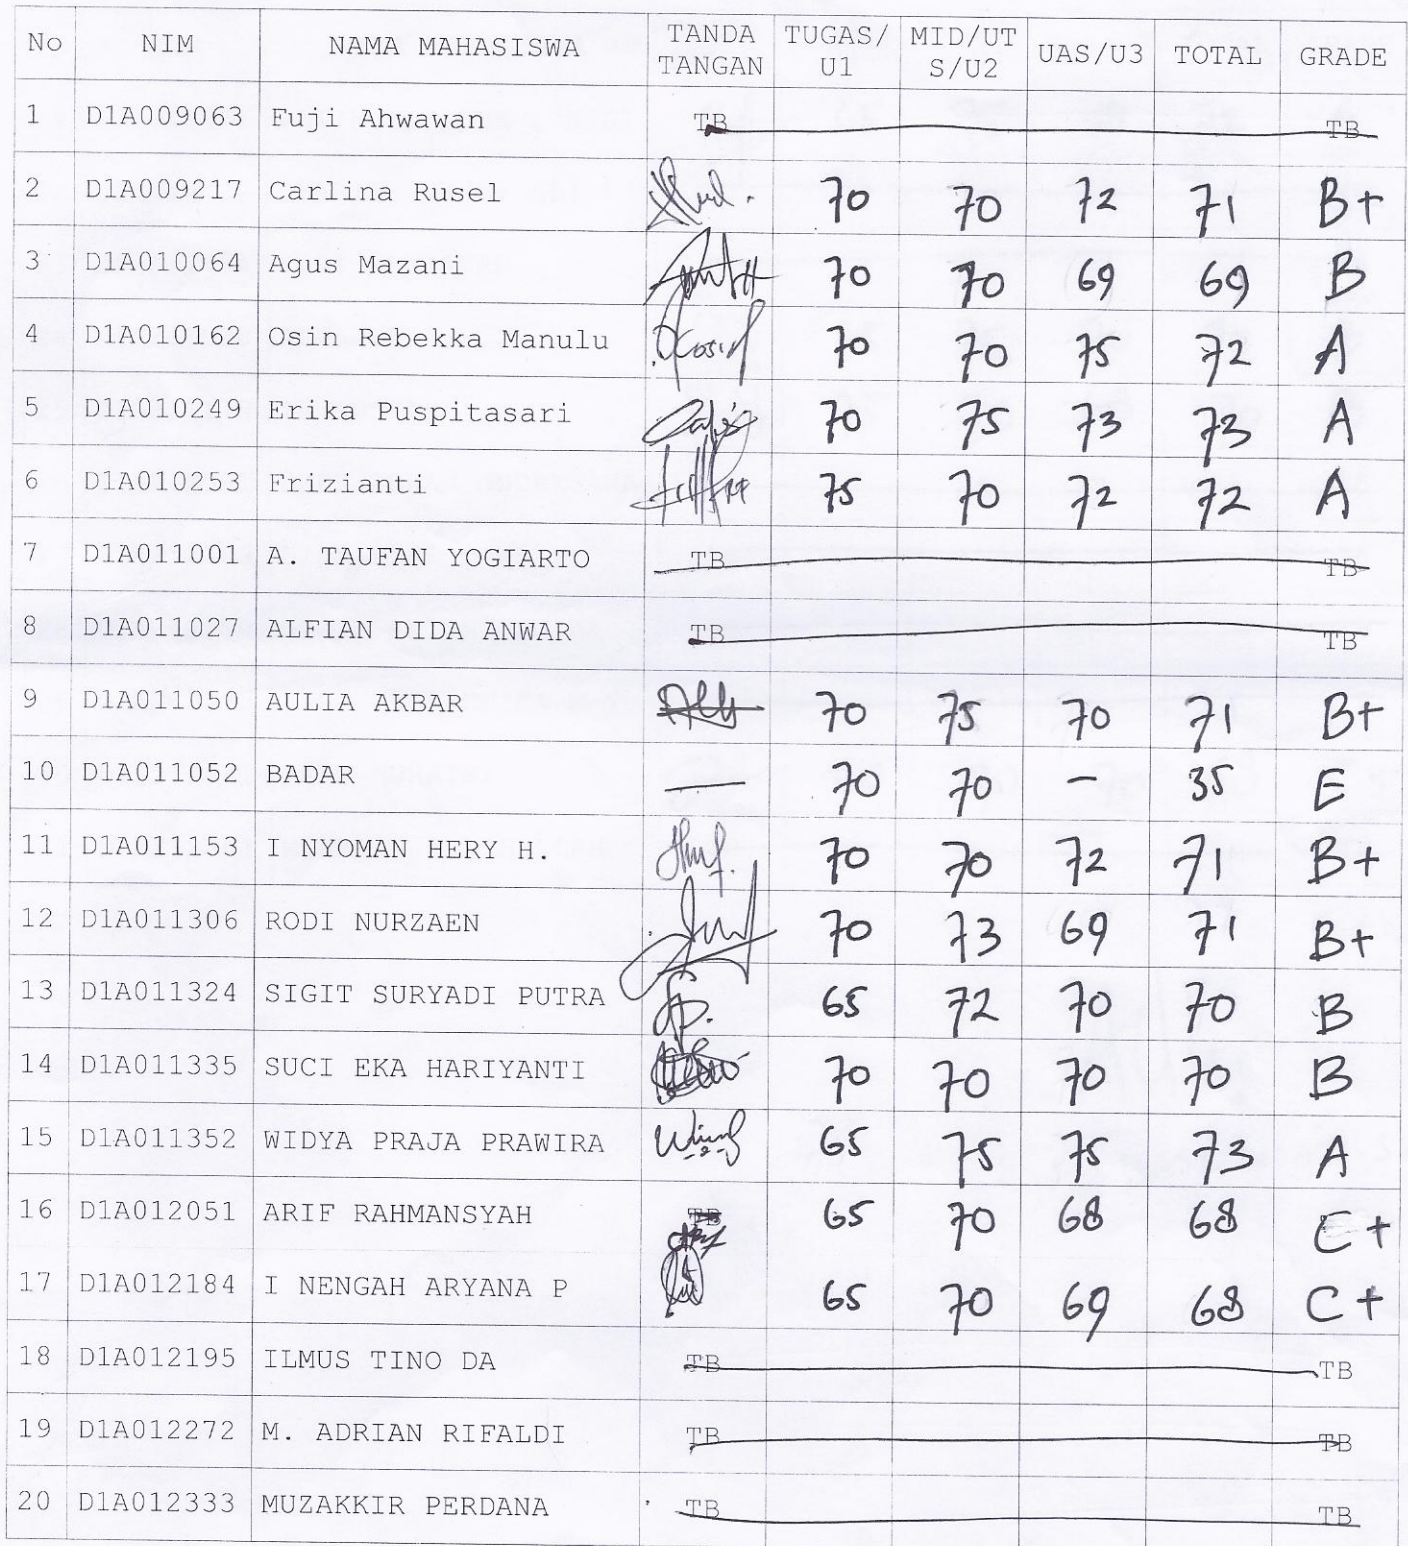 No NIM NAMA MAHASISWA TANDA TANGAN TUGAS/U1 MID/UTS/U2 UAS/U3 TOTAL GRADE
1 D1A009063 Fuji Ahwawan TB TB
2 D1A009217 Carlina Rusel 70 70 72 71 B+
3 D1A010064 Agus Mazani 70 70 69 69 B
4 D1A010162 Osin Rebekka Manulu 70 70 75 72 A
5 D1A010249 Erika Puspitasari 70 75 73 73 A
6 D1A010253 Frizianti 75 70 72 72 A
7 D1A011001 A. TAUFAN YOGIARTO TB TB
8 D1A011027 ALFIAN DIDA ANWAR TB TB
9 D1A011050 AULIA AKBAR 70 75 70 71 B+
10 D1A011052 BADAR — 70 70 – 35 E
11 D1A011153 I NYOMAN HERY H. 70 70 72 71 B+
12 D1A011306 RODI NURZAEN 70 73 69 71 B+
13 D1A011324 SIGIT SURYADI PUTRA 65 72 70 70 B
14 D1A011335 SUCI EKA HARIYANTI 70 70 70 70 B
15 D1A011352 WIDYA PRAJA PRAWIRA 65 75 75 73 A
16 D1A012051 ARIF RAHMANSYAH TB 65 70 68 68 C+
17 D1A012184 I NENGAH ARYANA P 65 70 69 68 C+
18 D1A012195 ILMUS TINO DA TB TB
19 D1A012272 M. ADRIAN RIFALDI TB TB
20 D1A012333 MUZAKKIR PERDANA TB TB